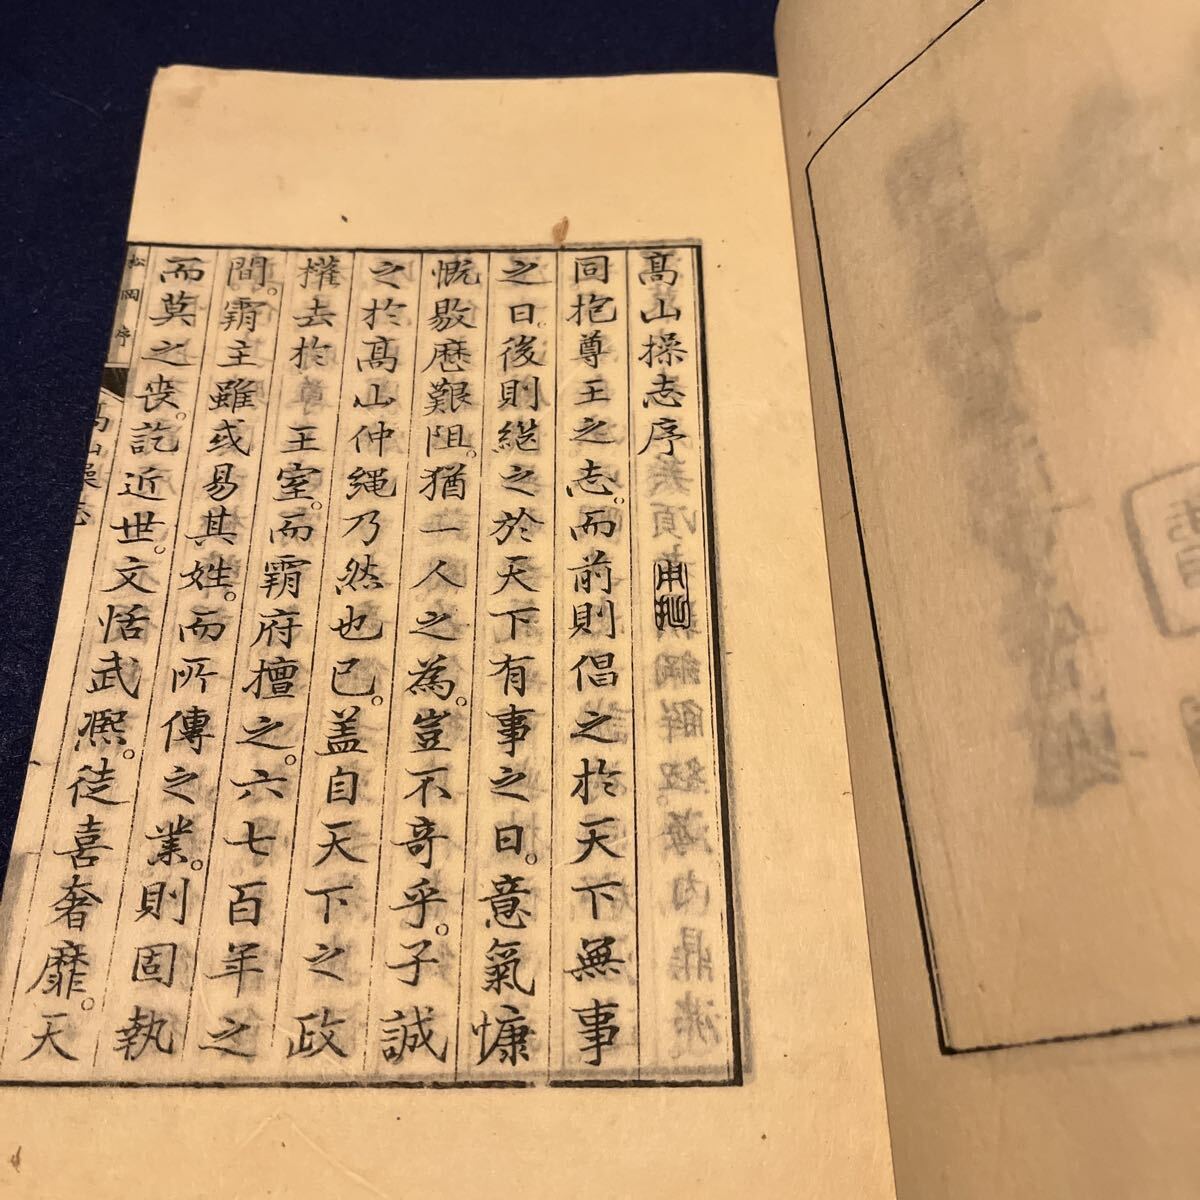 高山操志序
同抱尊王之志。而前則倡之於天下無事
之日。後則継之於天下有事之日。意氣慷
慨。歇歴艱阻。猶一人之為。豈不奇乎。子誠
之於高山仲縄乃然也已。盖自天下之政
權去於王室。而覇府擅之。六七百年之
間。覇主雖或易其姓。而所傳之業。則固執
而莫之喪。訖近世。文恬武熈。徒喜奢靡。天
松岡序
高山操志